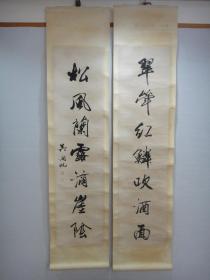 翠篸紅鱗吹酒面
松風蘭露滴崖陰